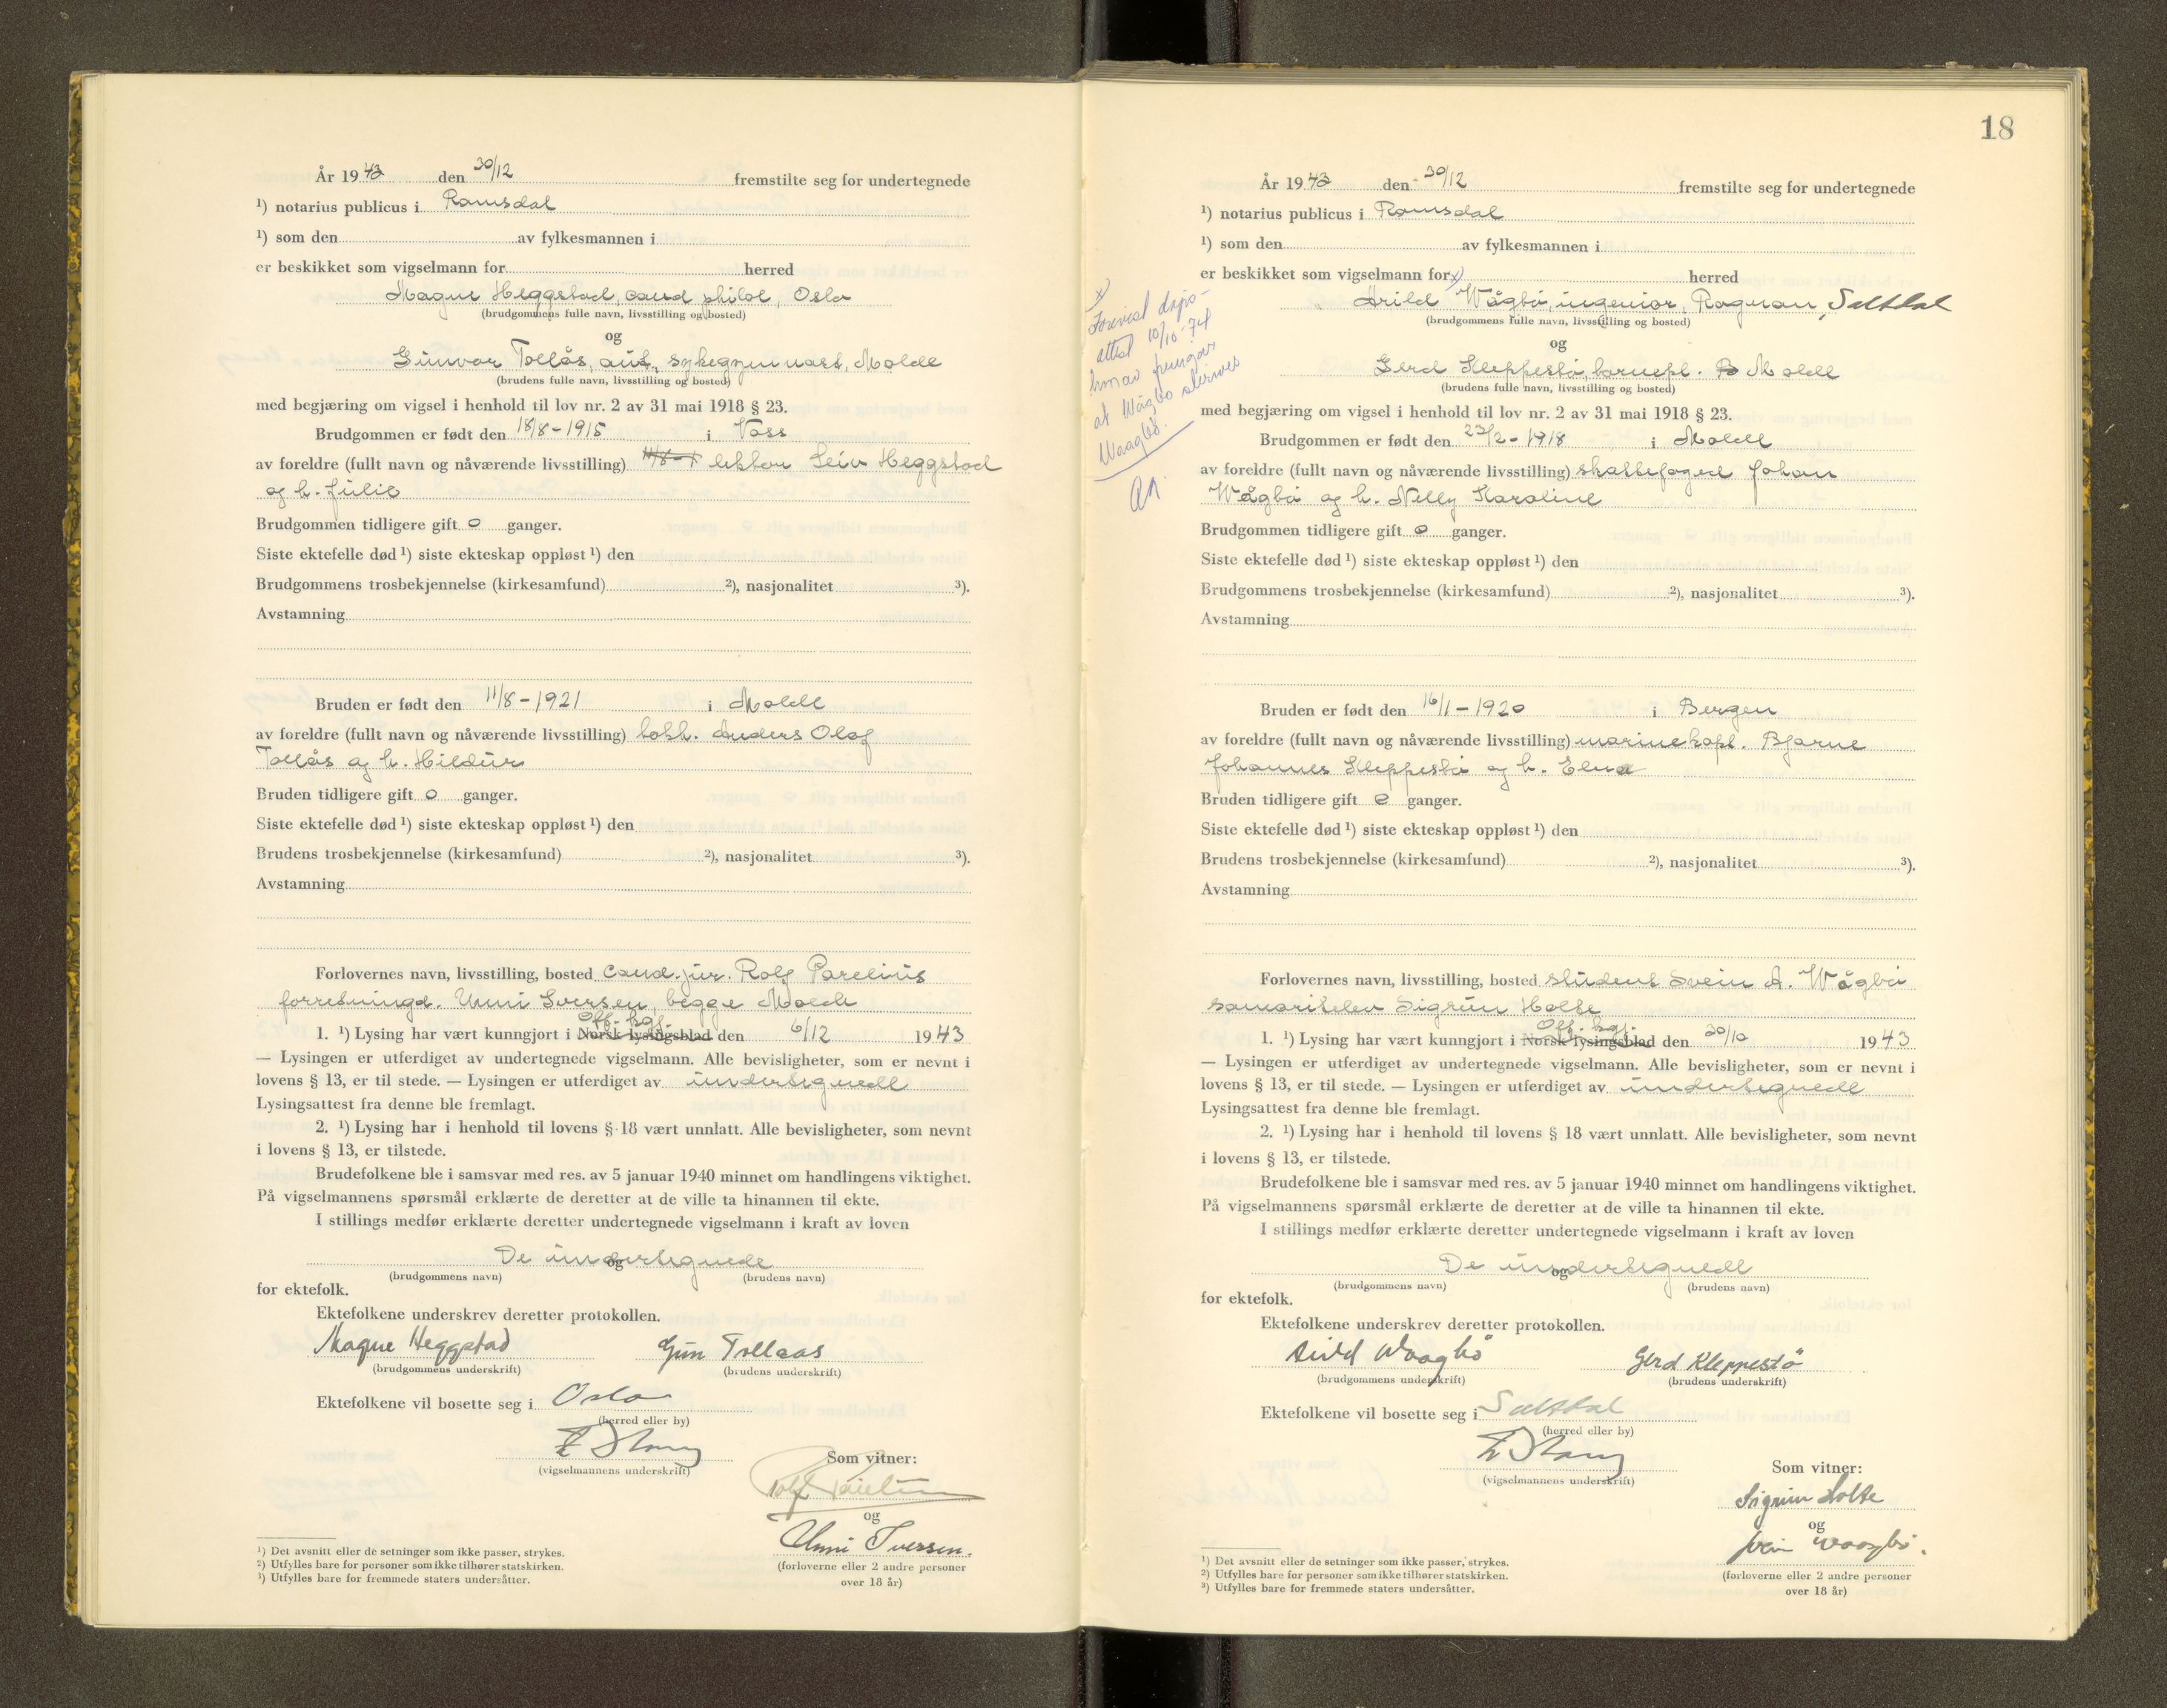 År 1943 den 30/12 fremstilte seg for undertegnede
¹) notarius publicus i Romsdal
¹) som den av fylkesmannen i
er beskikket som vigselmann for herred
Magne Heggstad, cand philol, Oslo
(brudgommens fulle navn, livsstilling og bosted)
og
Gunvor Tollås, aut. sykegymnast, Molde
(brudens fulle navn, livsstilling og bosted)
med begjæring om vigsel i henhold til lov nr. 2 av 31 mai 1918 § 23.
Brudgommen er født den 18/8-1915 i Voss
av foreldre (fullt navn og nåværende livsstilling) 11/8-1 lektor Leiv Heggstad
og h. Julie
Brudgommen tidligere gift 0 ganger.
Siste ektefelle død ¹) siste ekteskap oppløst ¹) den
Brudgommens trosbekjennelse (kirkesamfund) ²), nasjonalitet ³).
Avstamning
Bruden er født den 11/8-1921 i Molde
av foreldre (fullt navn og nåværende livsstilling) bokh. Anders Olaf
Tollås og h. Hildur
Bruden tidligere gift 0 ganger.
Siste ektefelle død ¹) siste ekteskap oppløst ¹) den
Brudens trosbekjennelse (kirkesamfund) ²), nasjonalitet ³).
Avstamning
Forlovernes navn, livsstilling, bosted cand. jur. Rolf Parelius
forretningd. Unni Iversen, begge Molde
Off. kgj.
1. ¹) Lysing har vært kunngjort i Norsk lysingsblad den 6/12 1943
— Lysingen er utferdiget av undertegnede vigselmann. Alle bevisligheter, som er nevnt i
lovens § 13, er til stede. — Lysingen er utferdiget av undertegnede
Lysingsattest fra denne ble fremlagt.
2. ¹) Lysing har i henhold til lovens § 18 vært unnlatt. Alle bevisligheter, som nevnt
i lovens § 13, er tilstede.
Brudefolkene ble i samsvar med res. av 5 januar 1940 minnet om handlingens viktighet.
På vigselmannens spørsmål erklærte de deretter at de ville ta hinannen til ekte.
I stillings medfør erklærte deretter undertegnede vigselmann i kraft av loven
De undertegnede
og
(brudgommens navn) (brudens navn)
for ektefolk.
Ektefolkene underskrev deretter protokollen.
Magne Heggstad Gun Tollaas
(brudgommens underskrift) (brudens underskrift)
Ektefolkene vil bosette seg i Oslo
(herred eller by)
(vigselmannens underskrift)
Som vitner:
Rolf Parelius
og
Unni Iversen.
(forloverne eller 2 andre personer
over 18 år)
¹) Det avsnitt eller de setninger som ikke passer, strykes.
²) Utfylles bare for personer som ikke tilhører statskirken.
³) Utfylles bare for fremmede staters undersåtter.
18
År 1943 den 30/12 fremstilte seg for undertegnede
¹) notarius publicus i Romsdal
¹) som den av fylkesmannen i
er beskikket som vigselmann for x) herred
Arild Wågbö, ingeniør, Rognan, Saltdal
(brudgommens fulle navn, livsstilling og bosted)
og
Gerd Kleppestö, barnepl. B Molde
(brudens fulle navn, livsstilling og bosted)
x)
Forevist dåps-
attest 10/10-74
hvorav fremgår
at Wågbø skrives
Waagbø.
med begjæring om vigsel i henhold til lov nr. 2 av 31 mai 1918 § 23.
Brudgommen er født den 23/2-1918 i Molde
av foreldre (fullt navn og nåværende livsstilling) skattefoged Johan
Wågbö og h. Nelly Karoline
Brudgommen tidligere gift 0 ganger.
Siste ektefelle død ¹) siste ekteskap oppløst ¹) den
Brudgommens trosbekjennelse (kirkesamfund) ²), nasjonalitet ³).
Avstamning
Bruden er født den 16/1-1920 i Bergen
av foreldre (fullt navn og nåværende livsstilling) marinekapt. Bjarne
Johannes Kleppestö og h. Elna
Bruden tidligere gift 0 ganger.
Siste ektefelle død ¹) siste ekteskap oppløst ¹) den
Brudens trosbekjennelse (kirkesamfund) ²), nasjonalitet ³).
Avstamning
Forlovernes navn, livsstilling, bosted student Svein A. Wågbö
samaritelev Sigrun Holte
Off. kgj.
1. ¹) Lysing har vært kunngjort i Norsk lysingsblad den 30/10 1943
— Lysingen er utferdiget av undertegnede vigselmann. Alle bevisligheter, som er nevnt i
lovens § 13, er til stede. — Lysingen er utferdiget av undertegnede
Lysingsattest fra denne ble fremlagt.
2. ¹) Lysing har i henhold til lovens § 18 vært unnlatt. Alle bevisligheter, som nevnt
i lovens § 13, er tilstede.
Brudefolkene ble i samsvar med res. av 5 januar 1940 minnet om handlingens viktighet.
På vigselmannens spørsmål erklærte de deretter at de ville ta hinannen til ekte.
I stillings medfør erklærte deretter undertegnede vigselmann i kraft av loven
De undertegnede
og
(brudgommens navn) (brudens navn)
for ektefolk.
Ektefolkene underskrev deretter protokollen.
Arild Waagbö Gerd Kleppestö
(brudgommens underskrift) (brudens underskrift)
Ektefolkene vil bosette seg i Saltdal
(herred eller by)
(vigselmannens underskrift)
Som vitner:
Sigrun Holte
og
Svein Waagbö.
(forloverne eller 2 andre personer
over 18 år)
¹) Det avsnitt eller de setninger som ikke passer, strykes.
²) Utfylles bare for personer som ikke tilhører statskirken.
³) Utfylles bare for fremmede staters undersåtter.